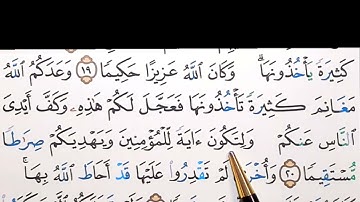 كَثِيرَةً يَأْخُذُونَهَا ۗ وَكَانَ اللَّهُ عَزِيزًا حَكِيمًا ١٩ وَعَدَكُمُ اللَّهُ
مَغَانِمَ كَثِيرَةً تَأْخُذُونَهَا فَعَجَّلَ لَكُمْ هَٰذِهِۦ وَكَفَّ أَيْدِىَ
النَّاسِ عَنكُمْ وَلِتَكُونَ ءَايَةً لِّلْمُؤْمِنِينَ وَيَهْدِيَكُمْ صِرَٰطًا
مُّسْتَقِيمًا ٢٠ وَأُخْرَىٰ لَمْ تَقْدِرُوا۟ عَلَيْهَا قَدْ أَحَاطَ اللَّهُ بِهَا ۚ